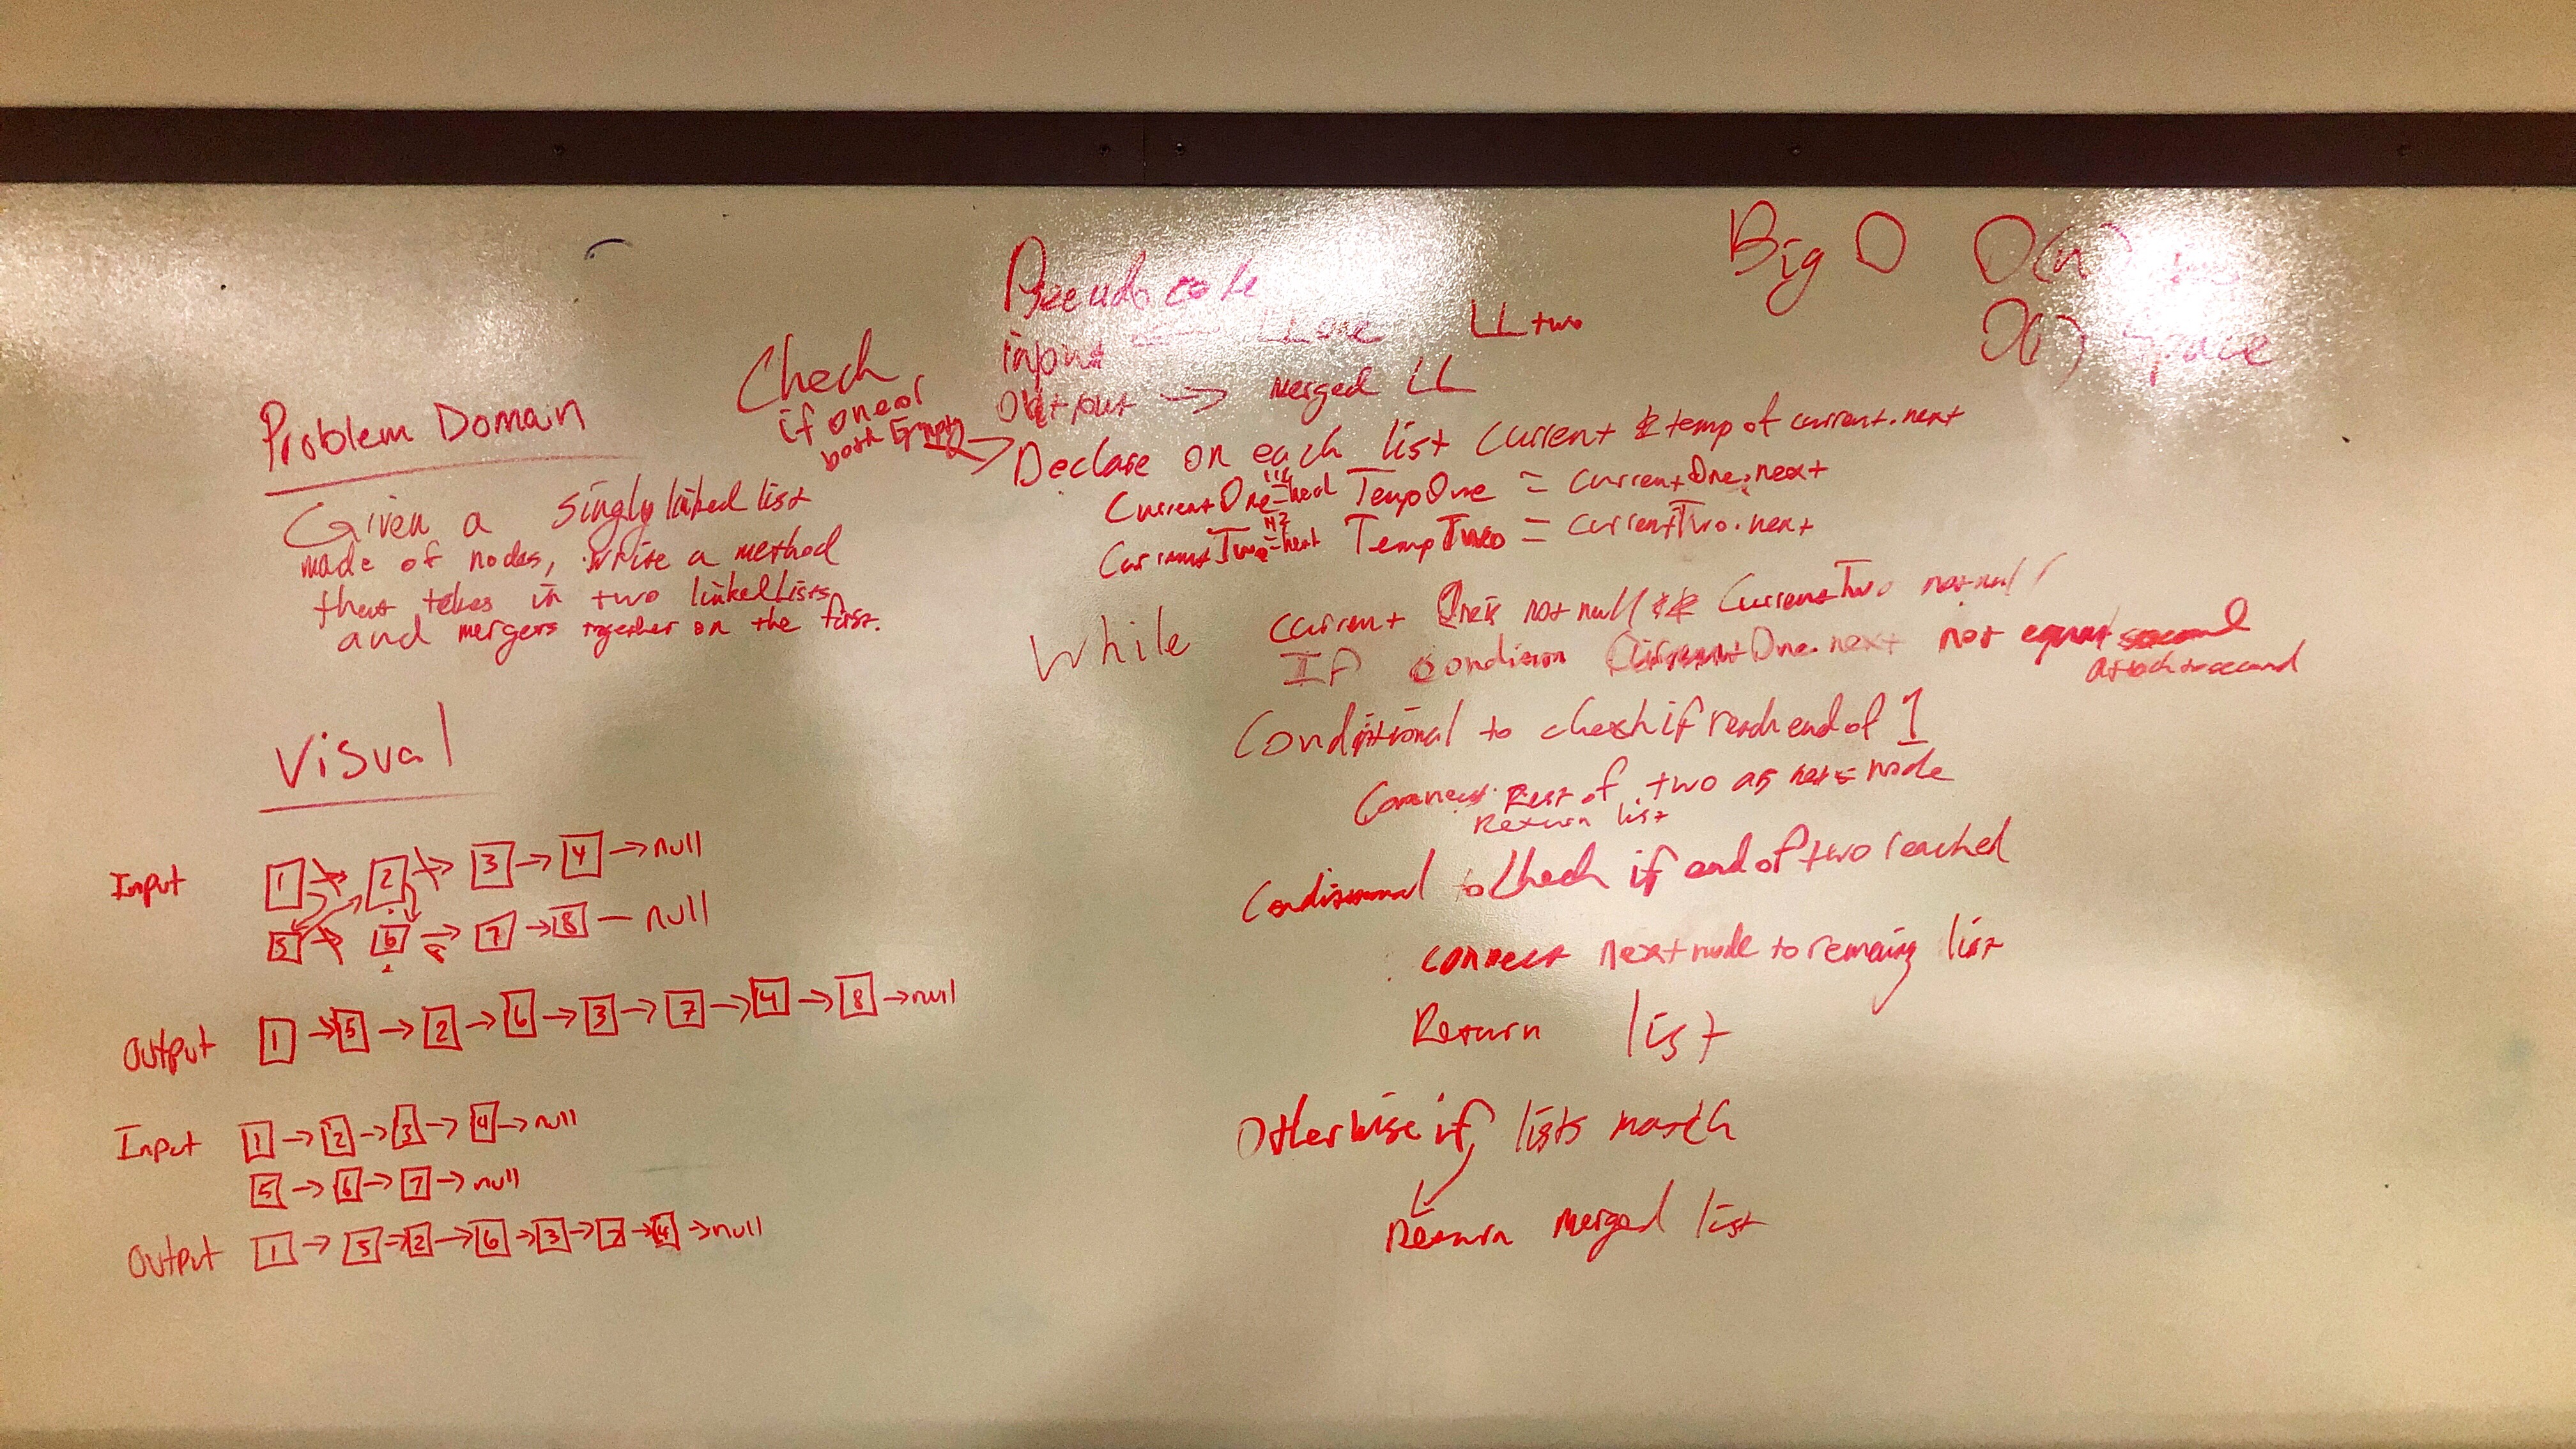 Problem Domain
Given a singly linked list
made of nodes, write a method
that takes in two linked Lists
and mergers together on the first.
Visual
Input 1 → 2 → 3 → 4 → null
5 → 6 → 7 → 8 — null
Output 1 → 5 → 2 → 6 → 3 → 7 → 4 → 8 → null
Input 1 → 2 → 3 → 4 → null
5 → 6 → 7 → null
Output 1 → 5 → 2 → 6 → 3 → 7 → 4 → null
Check
if one or
both Empty
Pseudo code
input LL one LL two
Output → merged LL
Declare on each list Current & temp of current.next
CurrentOne = head TempOne = CurrentOne.next
CurrentTwo = head TempTwo = CurrentTwo.next
While Current One is not null && CurrentTwo not null
If condition CurrentOne.next not equal second
attach to second
Conditional to check if reach end of 1
Connect Rest of two as next node
Return list
Conditional to check if end of two reached
connect next node to remaing list
Return list
Otherwise if lists match
Return merged list
Big O O(n)
O(1) Space